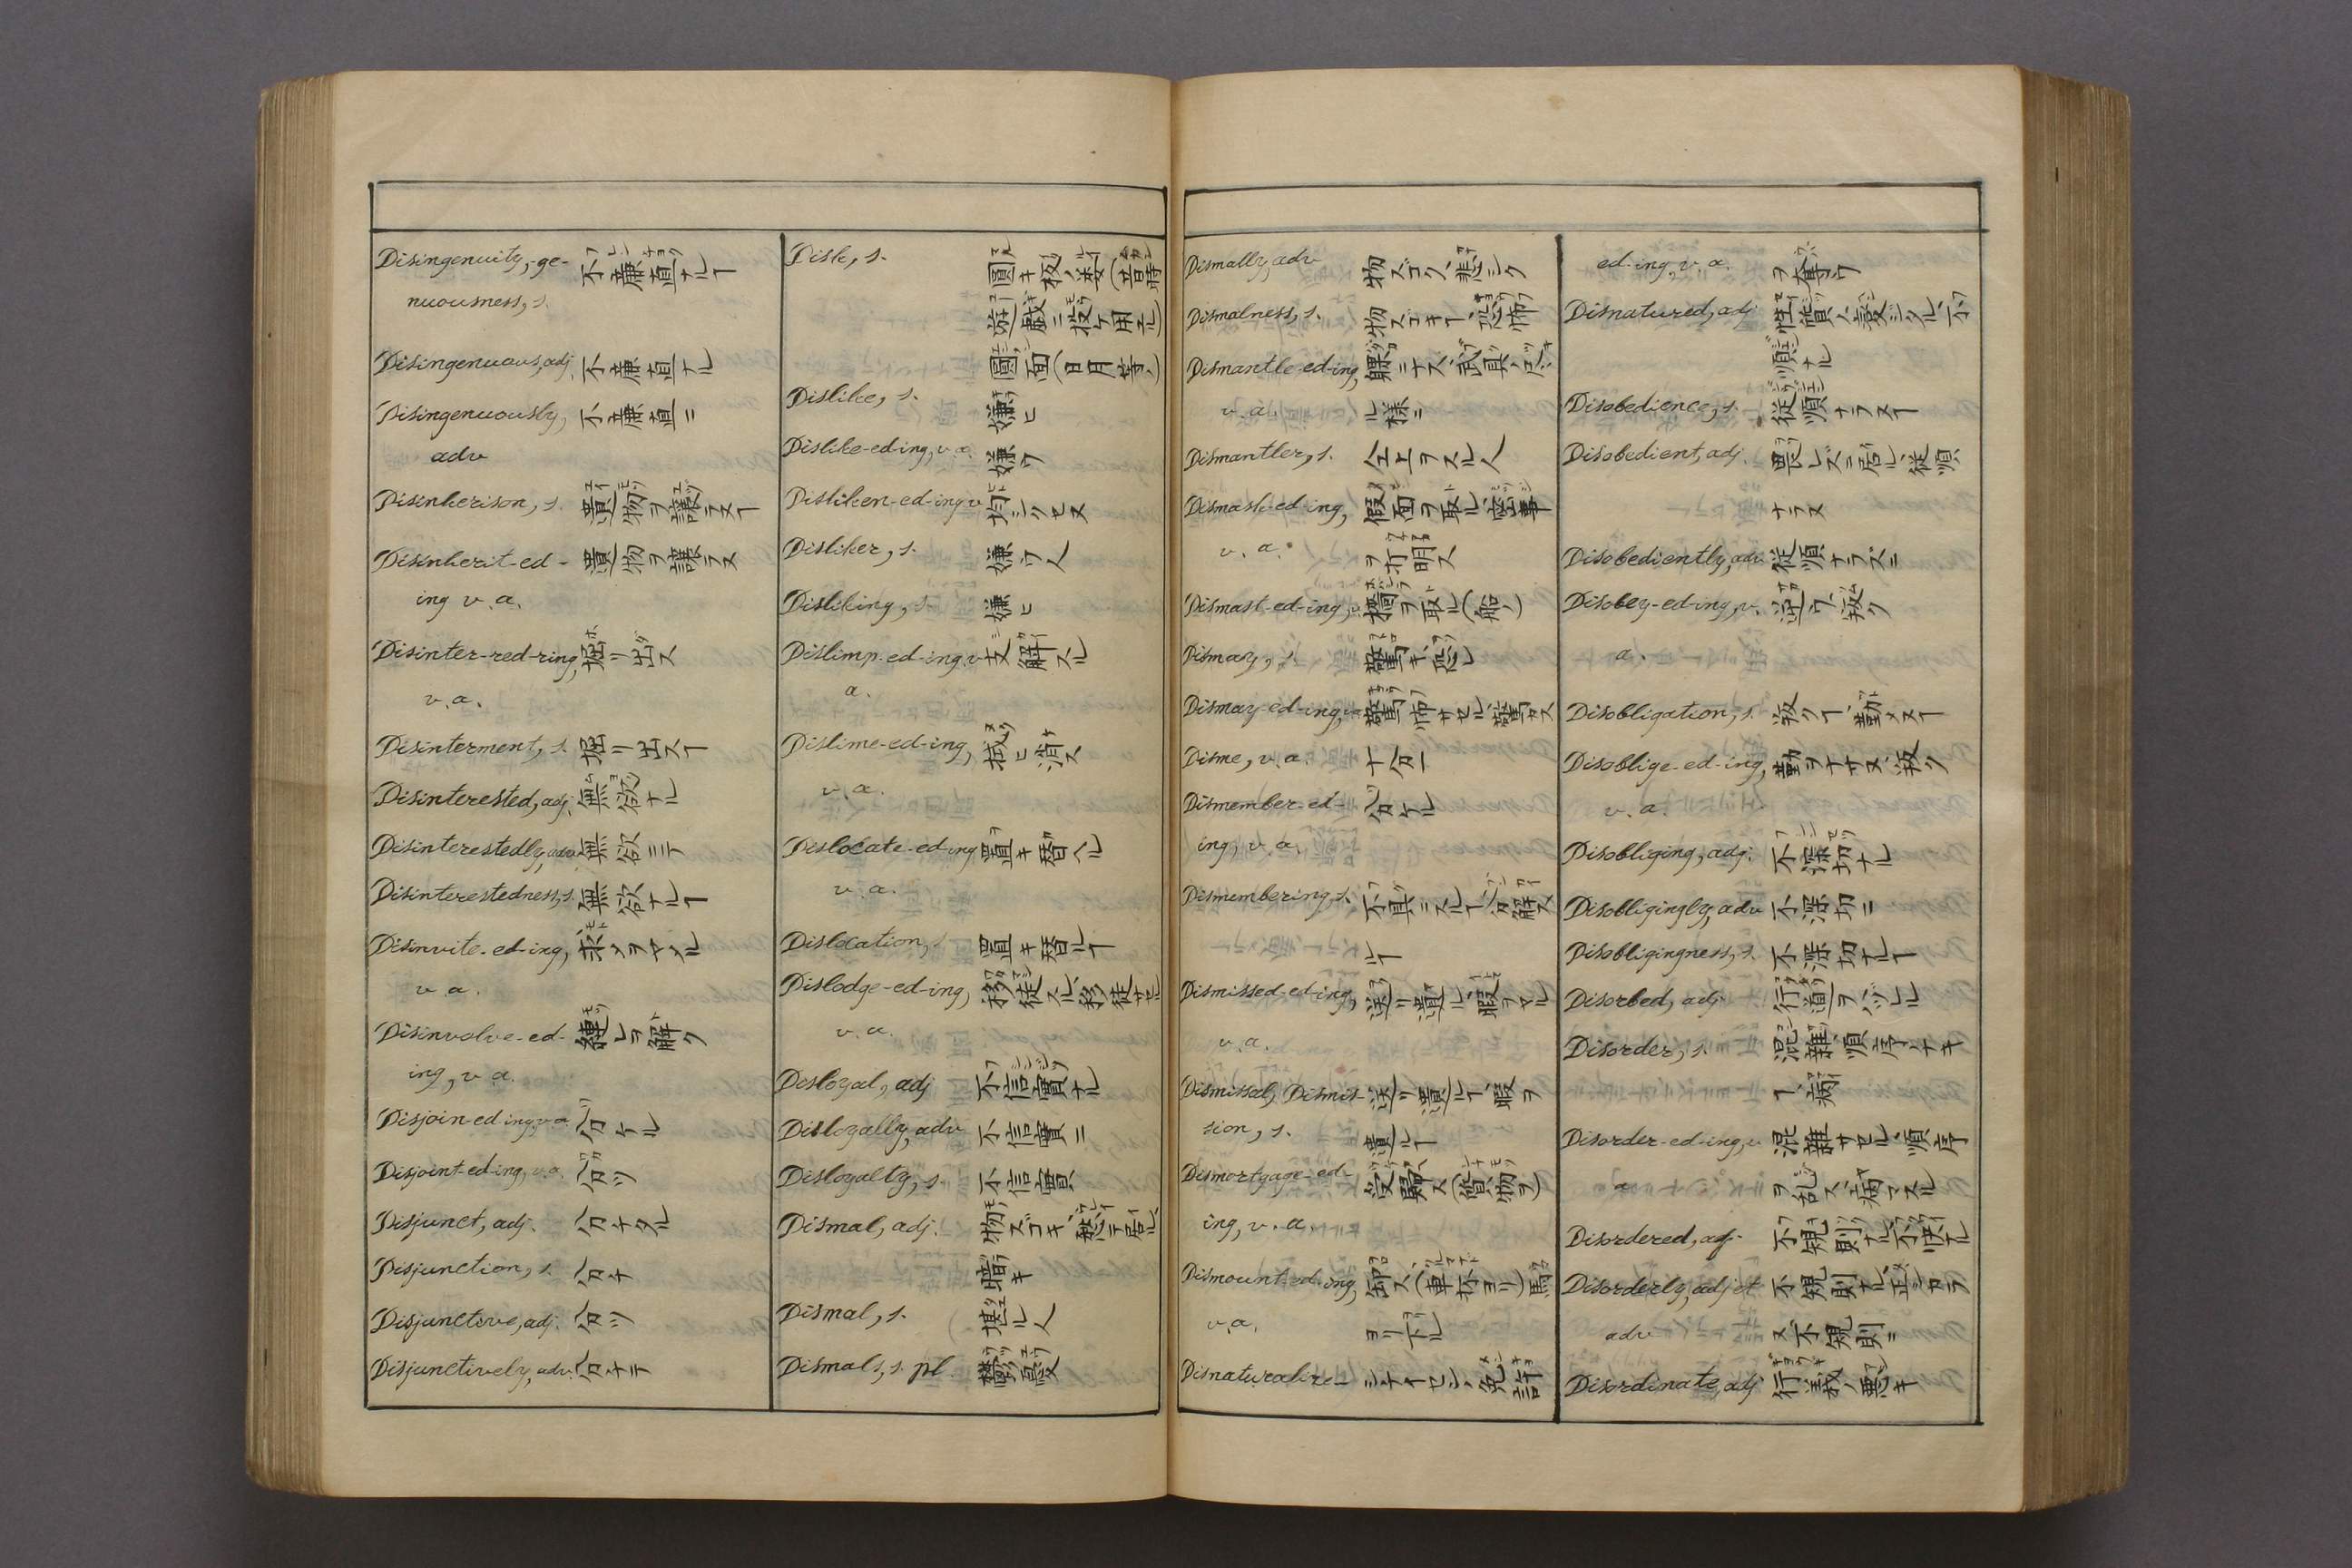 Disingenuity,-ge- 不廉直ナルヿ
nuousness, s.
Disingenuous, adj. 不廉直ナル
Disingenuously, 不廉直ニ
adv
Disinherison, s. 遺物ヲ譲ラヌヿ
Disinherit-ed- 遺物ヲ譲ラヌ
ing v.a.
Disinter-red-ring, 掘リ出ス
v.a.
Disinterment, s. 掘リ出スヿ
Disinterested, adj. 無欲ナル
Disinterestedly, adv 無欲ニテ
Disinterestedness, s. 無欲ナルヿ
Disinvite-ed-ing, 求メヲヤメル
v.a.
Disinvolve-ed- 縺レヲ解ク
ing, v.a.
Disjoin-ed-ing, v.a. 分ケル
Disjoint-ed-ing, v.a. 分ツ
Disjunct, adj. 分チタル
Disjunction, s. 分チ
Disjunctive, adj. 分ツ
Disjunctively, adv. 分チテ
Disk, s. 圓キ板ノ類(昔時
遊戯ニ投ケ用シ)
圓面(日月等ノ)
Dislike, s. 嫌ヒ
Dislike-ed-ing, v.a. 嫌フ
Disliken-ed-ing v 均シクセヌ
Disliker, s. 嫌フ人
Disliking, s. 嫌ヒ
Dislimp-ed-ing, v. 支解スル
a.
Dislime-ed-ing, 拭ヒ消ス
v.a.
Dislocate-ed-ing 置キ替ヘル
v.a.
Dislocation, s. 置キ替ルヿ
Dislodge-ed-ing, 移徙スル、移徙サセル
v.a.
Disloyal, adj 不信實ナル
Disloyally, adv 不信實ニ
Disloyalty, s. 不信實
Dismal, adj. 物ズゴキ、愁テ居ル、
暗キ
Dismal, s. 人
Dismals, s. pl. 鬱憂
Dismally, adv 物ズゴク、悲シク
Dismalness, s. 物ズゴキヿ、恐怖
Dismantle-ed-ing, 裸ニナス、武具ノ尽
v.a. ル様ニ
Dismantler, s. 仝上ヲスル人
Dismask-ed-ing, 假面ヲ取ル、密事
v.a. ヲ打明ス
Dismast-ed-ing, v. 檣ヲ取ル(船ノ)
Dismay, s. 驚キ、恐レ
Dismay-ed-ing, va 驚怖サセル、驚カス
Disme, v.a. 十分一
Dismember-ed- 分ケル
ing, v.a.
Dismembering, s. 不具ニスルヿ、分解ス
ルヿ
Dismissed-ed-ing, 送リ遣ル、暇ヲヤル
v.a.
Dismissal, Dismis- 送リ遣ルヿ、暇ヲ
sion, s. 遣ルヿ
Dismortgage-ed- 受戻ス(質物ヲ)
ing, v.a.
Dismount-ed-ing, 卸ス(車抔ヨリ)馬
v.a. ヨリ下ル
Disnaturalize- シナイセン、免許
ed-ing, v.a. ヲ奪フ
Disnatured, adj 性質ノ変シタル、不
順ナル
Disobedience, s. 従順ナラヌヿ
Disobedient, adj. 畏レズニ居ル、従順
ナラヌ
Disobediently, adv 従順ナラズニ
Disobey-ed-ing, v. 逆フ、叛ク
a.
Disobligation, s. 叛クヿ、勤メヌヿ
Disoblige-ed-ing, 勤ヲナサヌ、叛ク
v.a.
Disobliging, adj. 不深切ナル
Disobligingly, adv 不深切ニ
Disobligingness, s. 不深切ナルヿ
Disorbed, adj 行道ヲハヅレル
Disorder, s. 混雜、順序ノナキ
ヿ、病
Disorder-ed-ing, v 混雜サセル、順序
a ヲ乱ス、病マスル
Disordered, adj- 不規則ナル、不快ナル
Disorderly, adj et 不規則ナル、正シカラ
adv ヌ、不規則ニ
Disordinate, adj 行義ノ悪キ